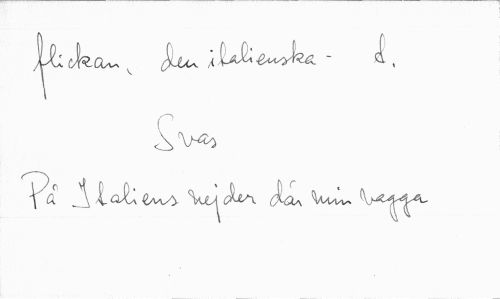 flickan, den italienska - d.
Svas
På Italiens nejder där min vagga